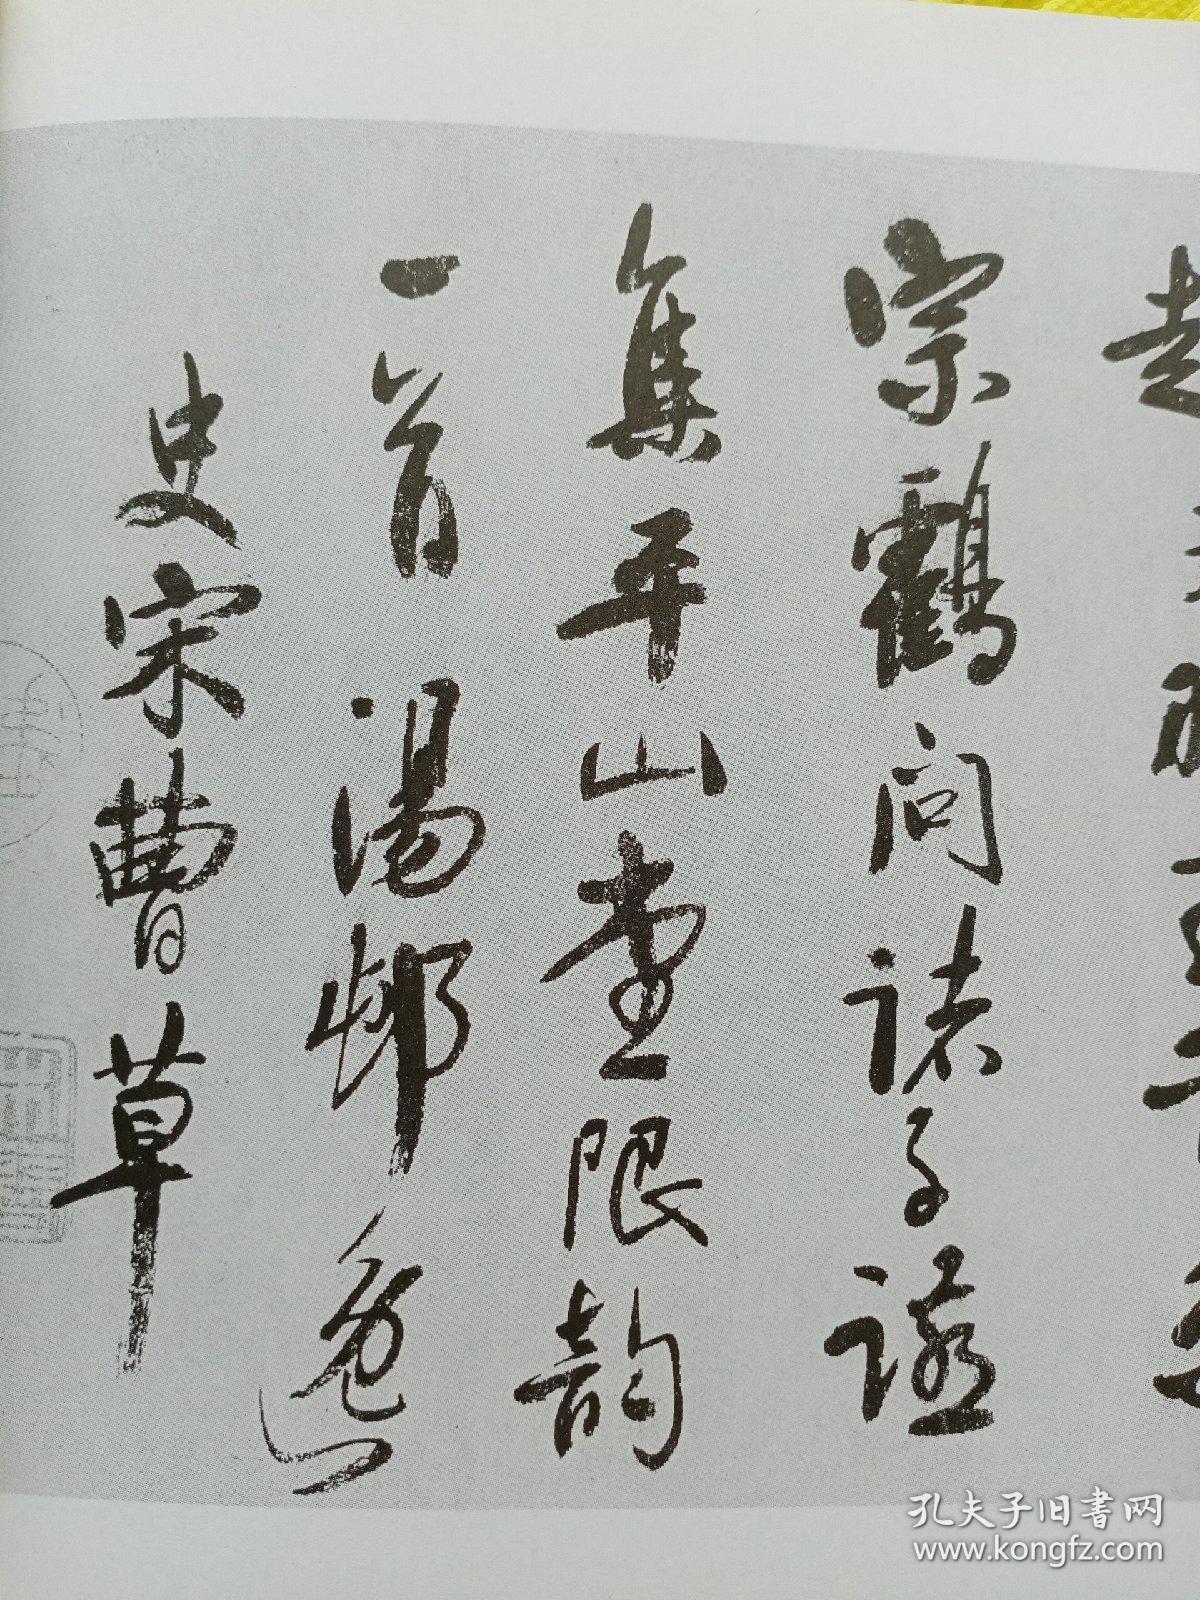 宗鸖問諸子讌
集平山堂限韵
一首 湯邨逸
史宋曹草
孔夫子旧书网
www.kongfz.com